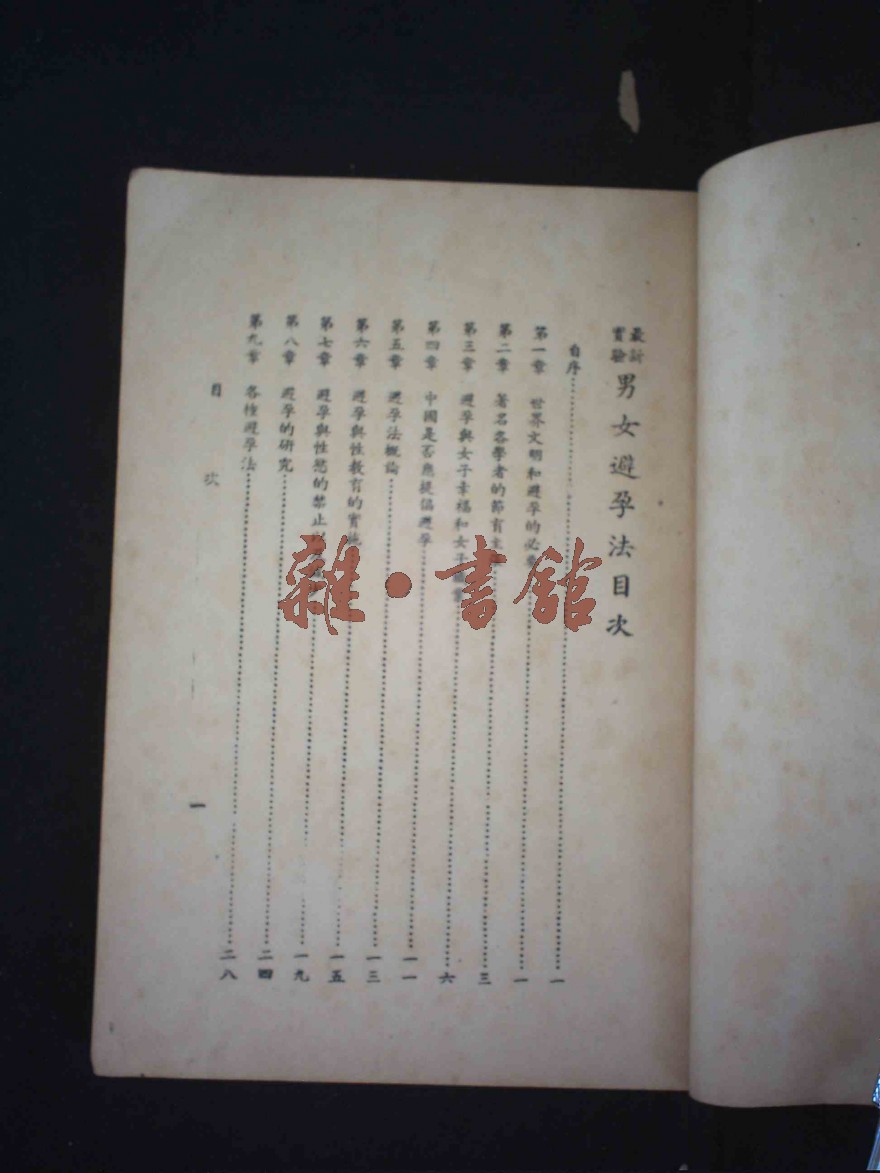 最新
實驗
男女避孕法目次
自序……一
第一章 世界文明和避孕的必要……一
第二章 著名各學者的節育主……三
第三章 避孕與女子幸福和女子……六
第四章 中國是否應提倡避孕……一一
第五章 避孕法概論……一三
第六章 避孕與性教育的實施……一五
第七章 避孕與性慾的禁止……一九
第八章 避孕的研究……二四
第九章 各種避孕法……二八
目次
一
雜·書館